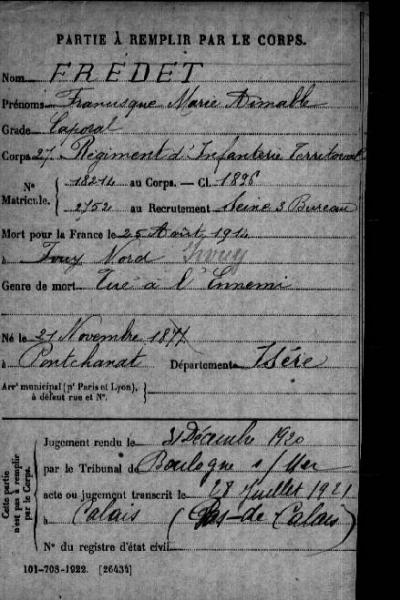 PARTIE À REMPLIR PAR LE CORPS.
Nom FREDET
Prénoms Francisque Marie Aimable
Grade Caporal
Corps 27 Régiment d'Infanterie Territorial
N° Matricule. { 18214 au Corps. — Cl. 1896
2752 au Recrutement Seine 3 Bureau
Mort pour la France le 25 Août 1914
à Nord
Genre de mort Tué à l'Ennemi
Né le 21 Novembre
à Pontcharrat Département Isére
Arr' municipal (p' Paris et Lyon), à défaut rue et N°.
Cette partie n'est pas à remplir par le Corps.
Jugement rendu le 31 Décembre 1920
par le Tribunal de Boulogne s/Mer
acte ou jugement transcrit le 28 Juillet 1921
à Calais (Pas-de Calais)
N° du registre d'état civil
101-708-1922. [26434]